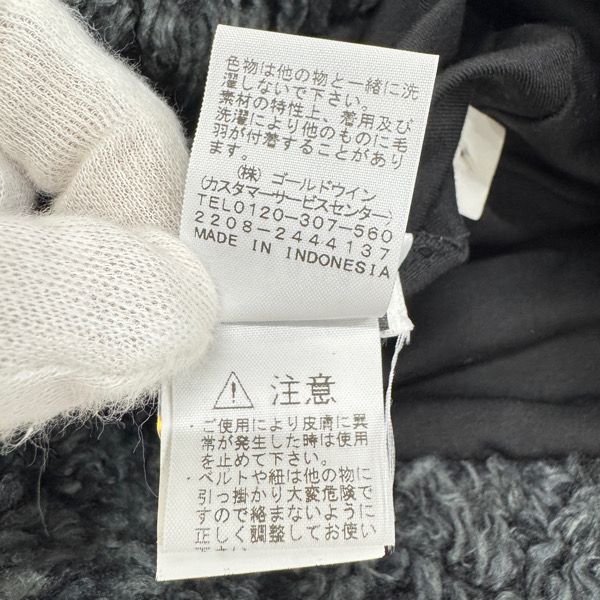 色物は他の物と一緒に洗
濯しないで下さい。
素材の特性上、着用及び
洗濯により他のものに毛
羽が付着することがあり
ます。
(株) ゴールドウイン
(カスタマーサービスセンター)
TEL0120-307-560
2208-2444137
MADE IN INDONESIA
注意
・ご使用により皮膚に異
常が発生した時は使用
を止めて下さい。
・ベルトや紐は他の物に
引っ掛かり大変危険で
すので絡まないように
正しく調整してお使い